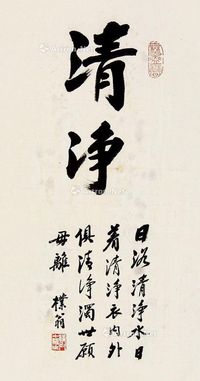 清
净
日浴清净水日
着清净衣内外
俱清净濁世願
毋離 樸翁